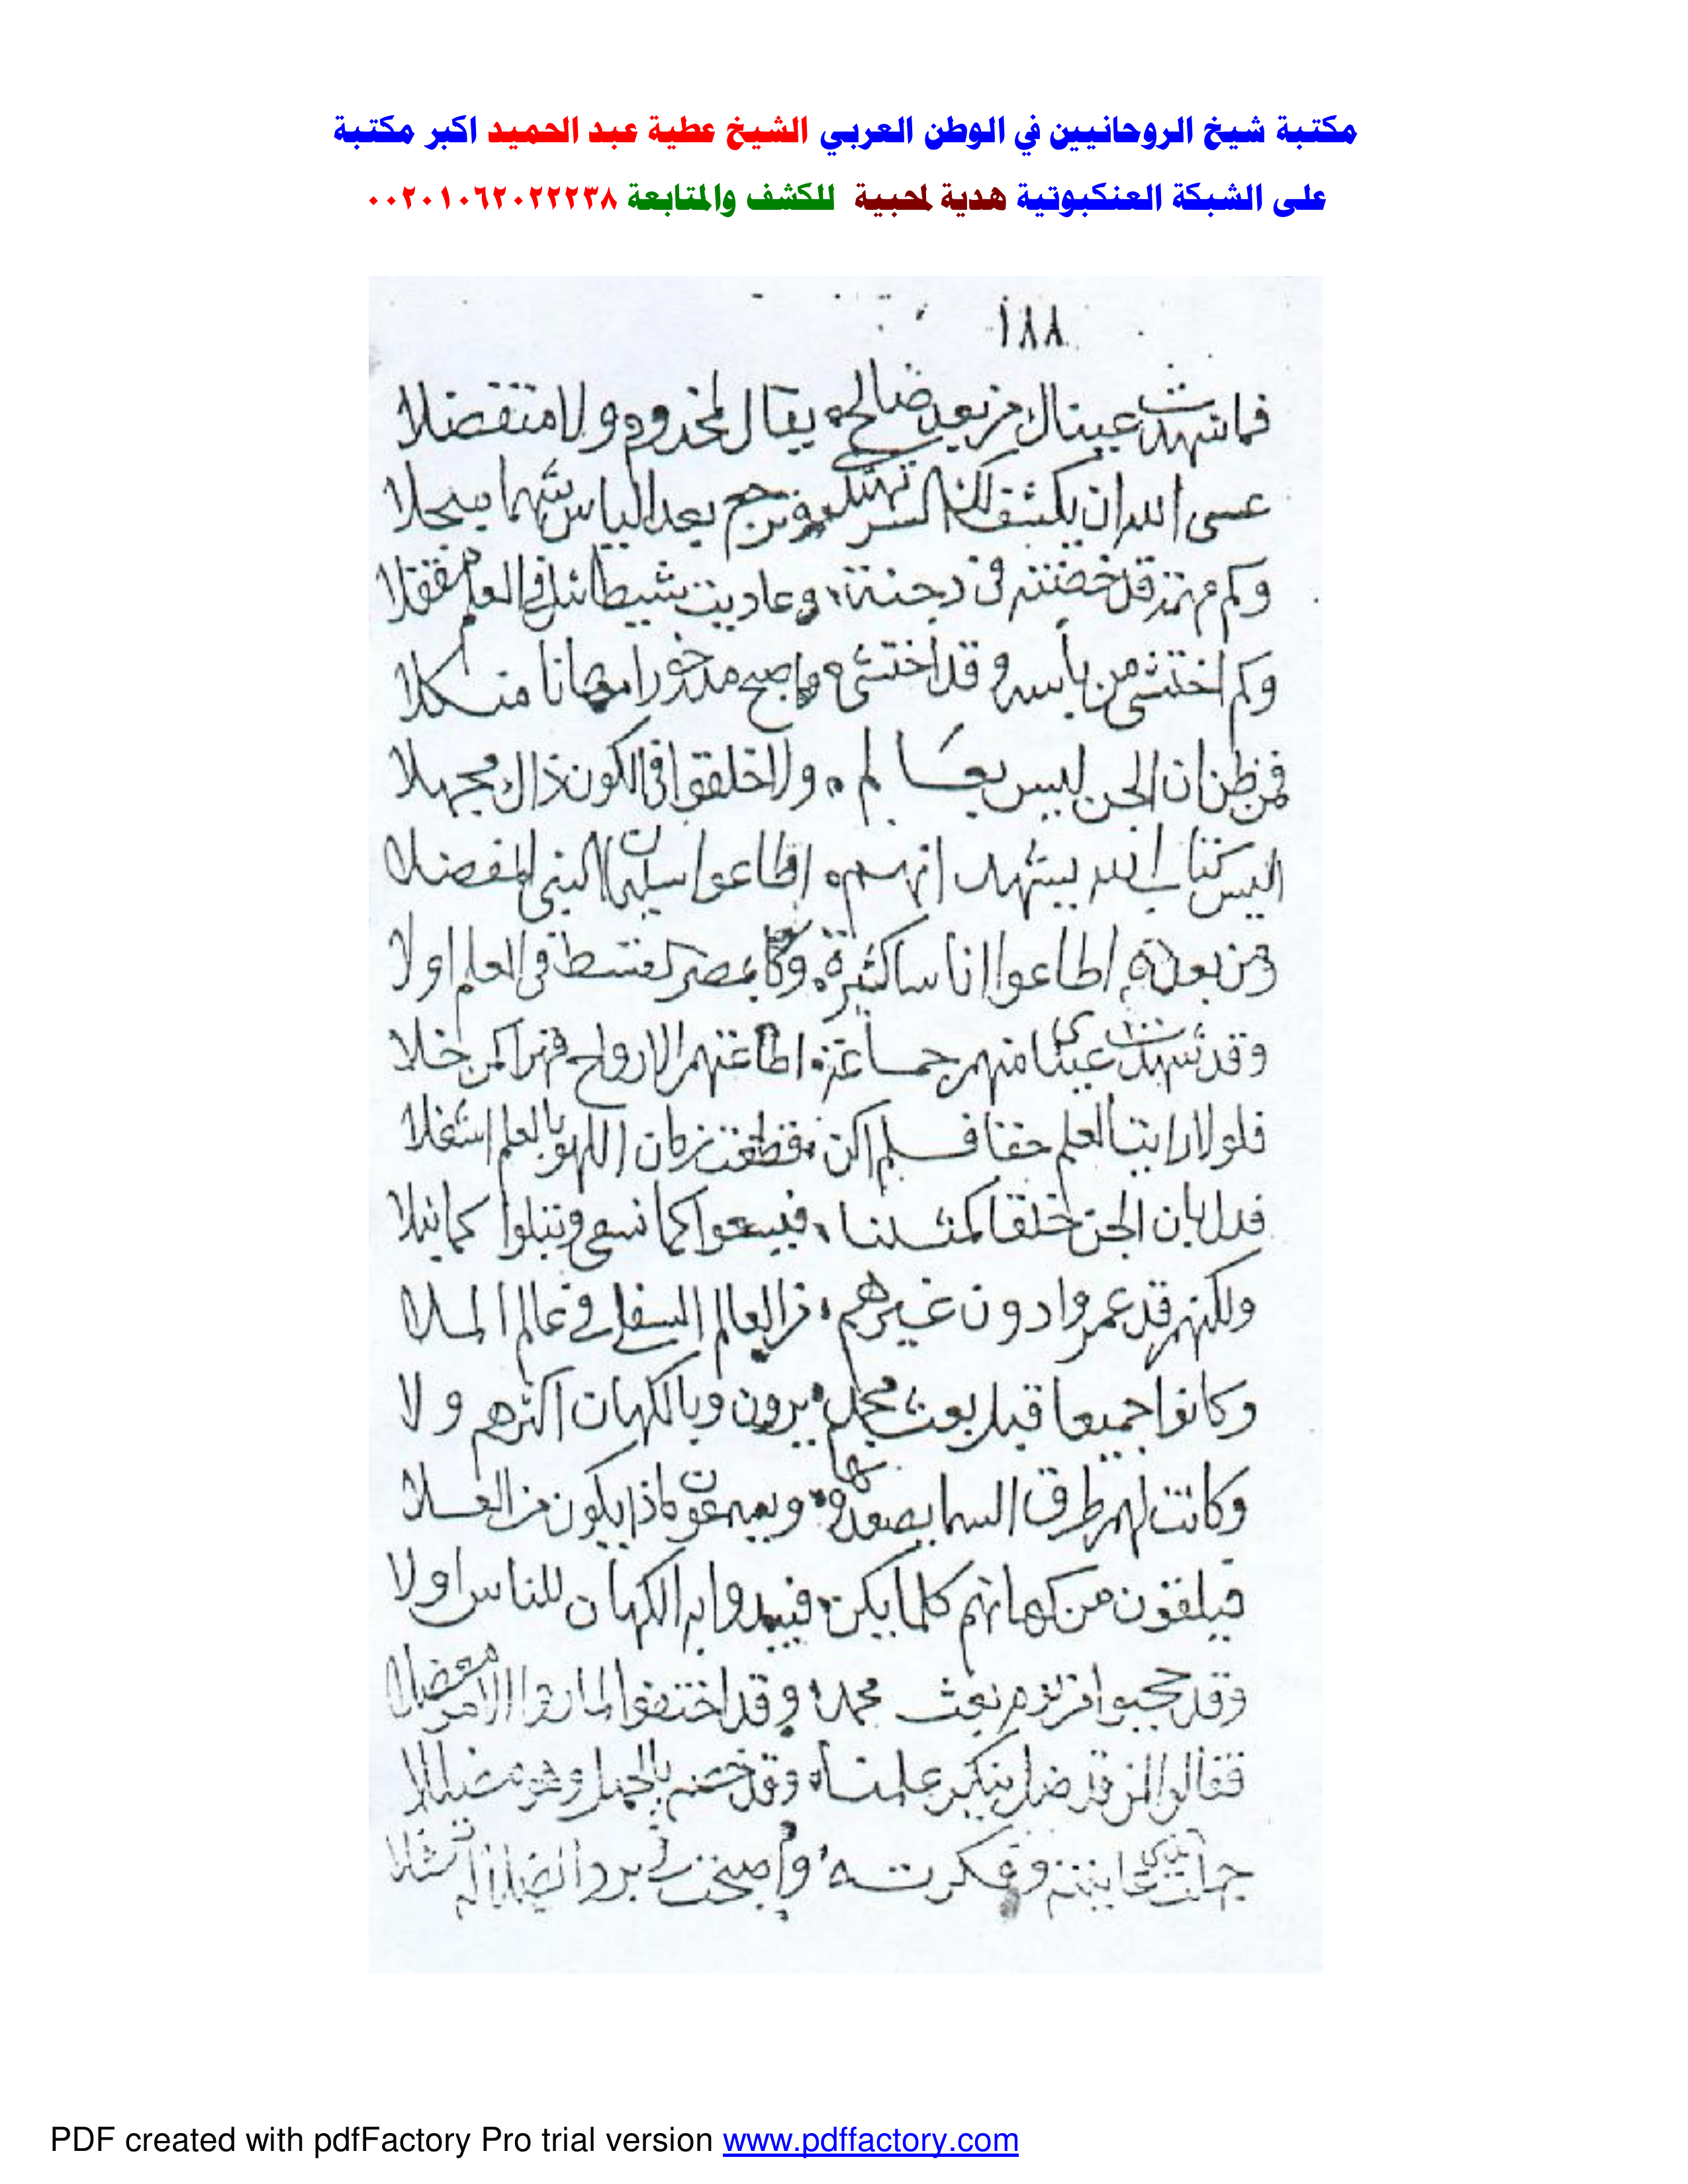 مكتبة شيخ الروحانيين في الوطن العربي الشيخ عطية عبد الحميد اكبر مكتبة
على الشبكة العنكبوتية هدية لمحبية للكشف والمتابعة ٠٠٢٠١٠٦٢٠٢٢٢٣٨
١٨٨
فما شهدت عينال من بعد صالح يقال لمخدوم ولا متفضلا
عسى الله ان يكشف السر بعد الياس
وكم من قد خضته في دجنة وعاديت في العلم
وكم اختشى من باسه وقد اختشى واصبح مدحورا مهانا منكلا
فمن ظن ان الجن ليس بعالم ولا خلقوا في الكون ذاك مجهلا
اليس كتاب الله يشهد انهم اطاعوا سليمان النبي المفضلا
ومن بعده اطاعوا اناسا كثيرة وكان بمصر في العلم اولا
وقد شهدت عيناى منهم جماعة اطاعتهم الارواح
فلولا رايت العلم حقا فلم اكن قطعت زمان اللهو بالعلم اشغلا
فدل بان الجن خلقا كمثلنا فيسعوا كما نسعى وتبلوا كما نبلا
ولكنهم قد عمروا دون غيرهم من العالم السفلي في عالم الملا
وكانوا جميعا قبل بعث محمد يرون وبالكهان اكثرهم ولا
وكانت لهم طرق السما يصعدونها ويسمعون ماذا يكون من العلا
فيلقون من كهانهم كلما يكن فيبدوا به الكهان للناس اولا
وقد حجبوا من يوم بعث محمد وقد اختفوا لما راوا الامر معضلا
فقالوا لمن قد ضل ينكر علمنا وقد خصه بالجهل وهو
وفكرته واصبحت في برد
PDF created with pdfFactory Pro trial version www.pdffactory.com